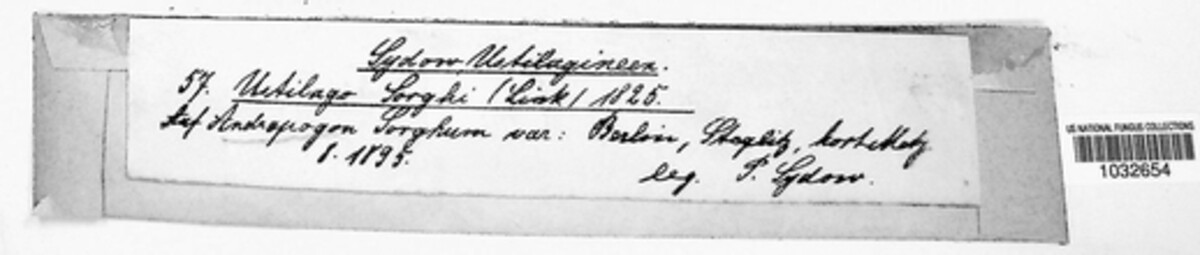 Sydow Ustilagineen.
57. Ustilago Sorghi (Link) 1825.
Auf Andropogon Sorghum var: Berlin, Steglitz,
8. 1895.
leg. P. Sydow.
US NATIONAL FUNGUS COLLECTIONS
1032654